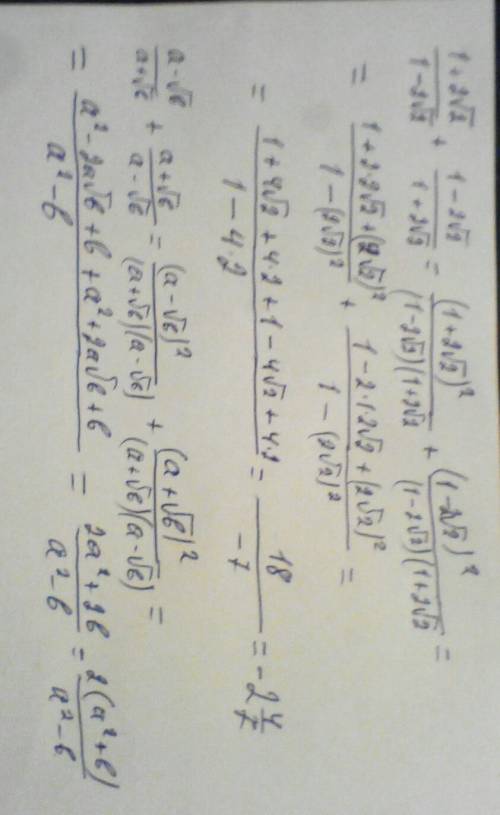 (1+2√2)/(1-2√2) + (1-2√2)/(1+2√2) = (1+2√2)²/((1-2√2)(1+2√2) + (1-2√2)²/((1-2√2)(1+2√2) =
= (1+2·2√2+(2√2)²)/(1-(2√2)²) + (1-2·1·2√2+(2√2)²)/(1-(2√2)²) =
= (1+4√2+4·2+1-4√2+4·2)/(1-4·2) = 18/-7 = -2 4/7
(a-√b)/(a+√b) + (a+√b)/(a-√b) = (a-√b)²/((a+√b)(a-√b)) + (a+√b)²/((a+√b)(a-√b)) =
= (a²-2a√b+b+a²+2a√b+b)/(a²-b) = (2a²+2b)/(a²-b) = 2(a²+b)/(a²-b)